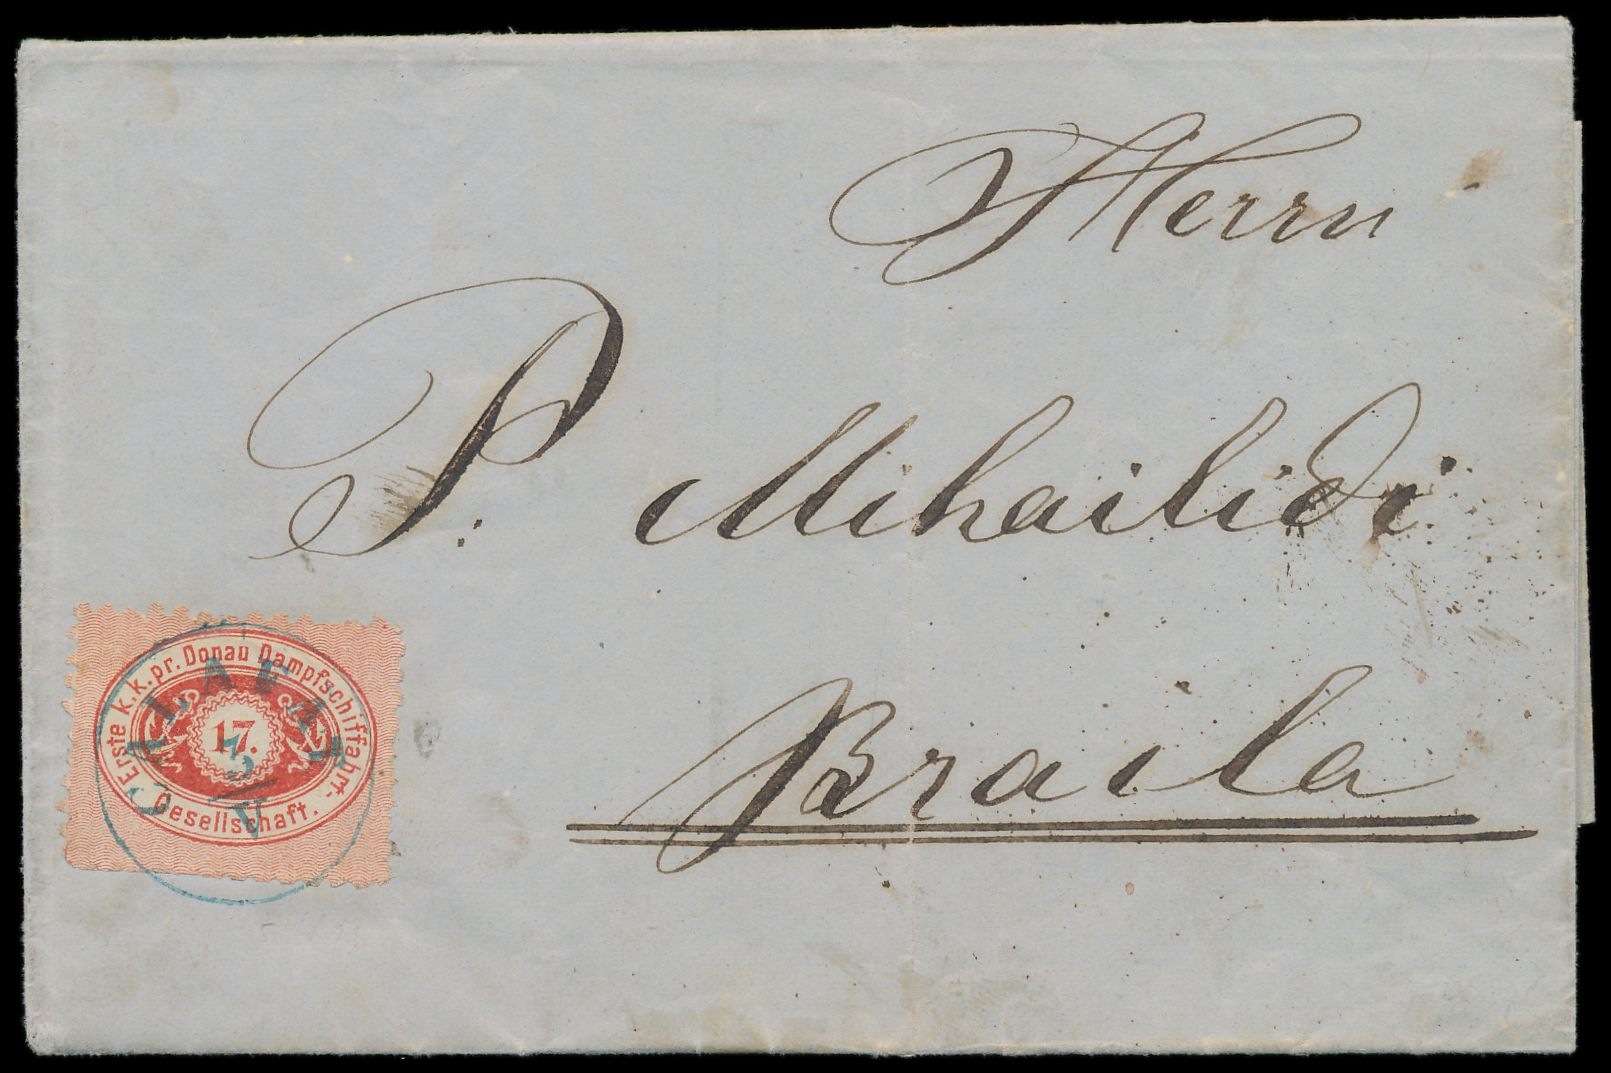 Herrn
P. Mihailidi
Braila
Erste k.k.pr. Donau Dampfschiffahrt-
Gesellschaft.
17.
CALAFAT
5/V